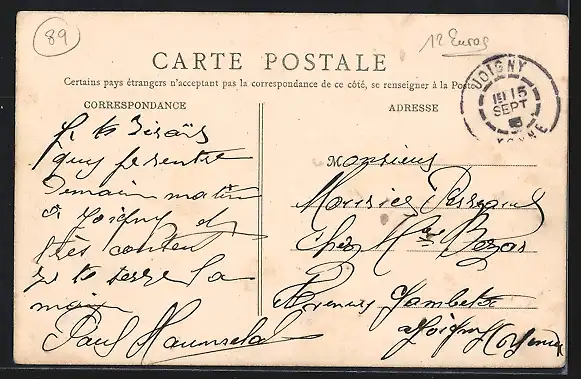 89
12 Euros
CARTE POSTALE
Certains pays étrangers n'acceptant pas la correspondance de ce côté, se renseigner à la Poste
JOIGNY
15
SEPT
YONNE
CORRESPONDANCE
ADRESSE
Je te
demain matin
à Joigny et
très content
Je te serre la
main
Paul
Monsieur
Maurice
Chez Mme
Avenue Gambetta
à Joigny (Yonne)